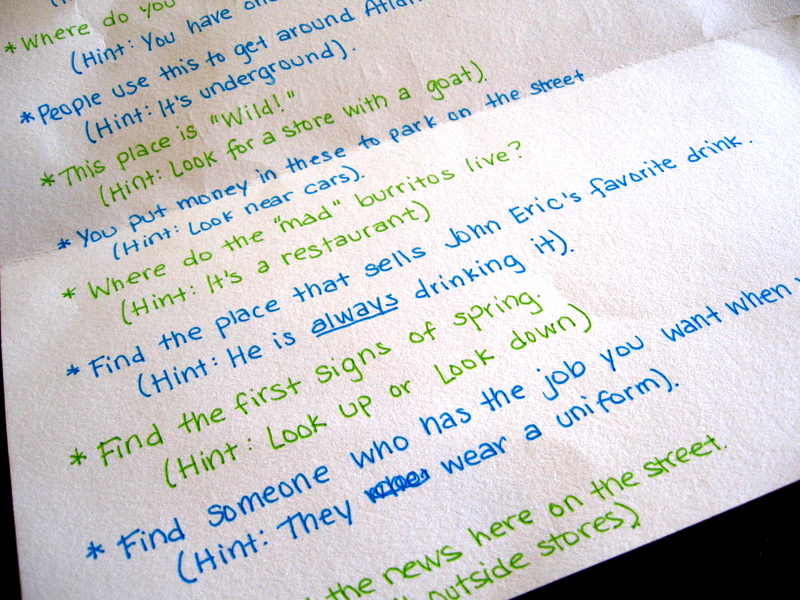 *Where do you
(Hint: You have
*People use this to get around
(Hint: It's underground).
*This place is "Wild!"
(Hint: Look for a store with a goat).
*You put money in these to park on the street
(Hint: Look near cars).
*Where do the "mad" burritos live?
(Hint: It's a restaurant)
*Find the place that sells John Eric's favorite drink.
(Hint: He is always drinking it).
*Find the first signs of spring.
(Hint: Look up or Look down)
*Find someone who has the job you want when
(Hint: They wear a uniform).
the news here on the street.
outside stores)